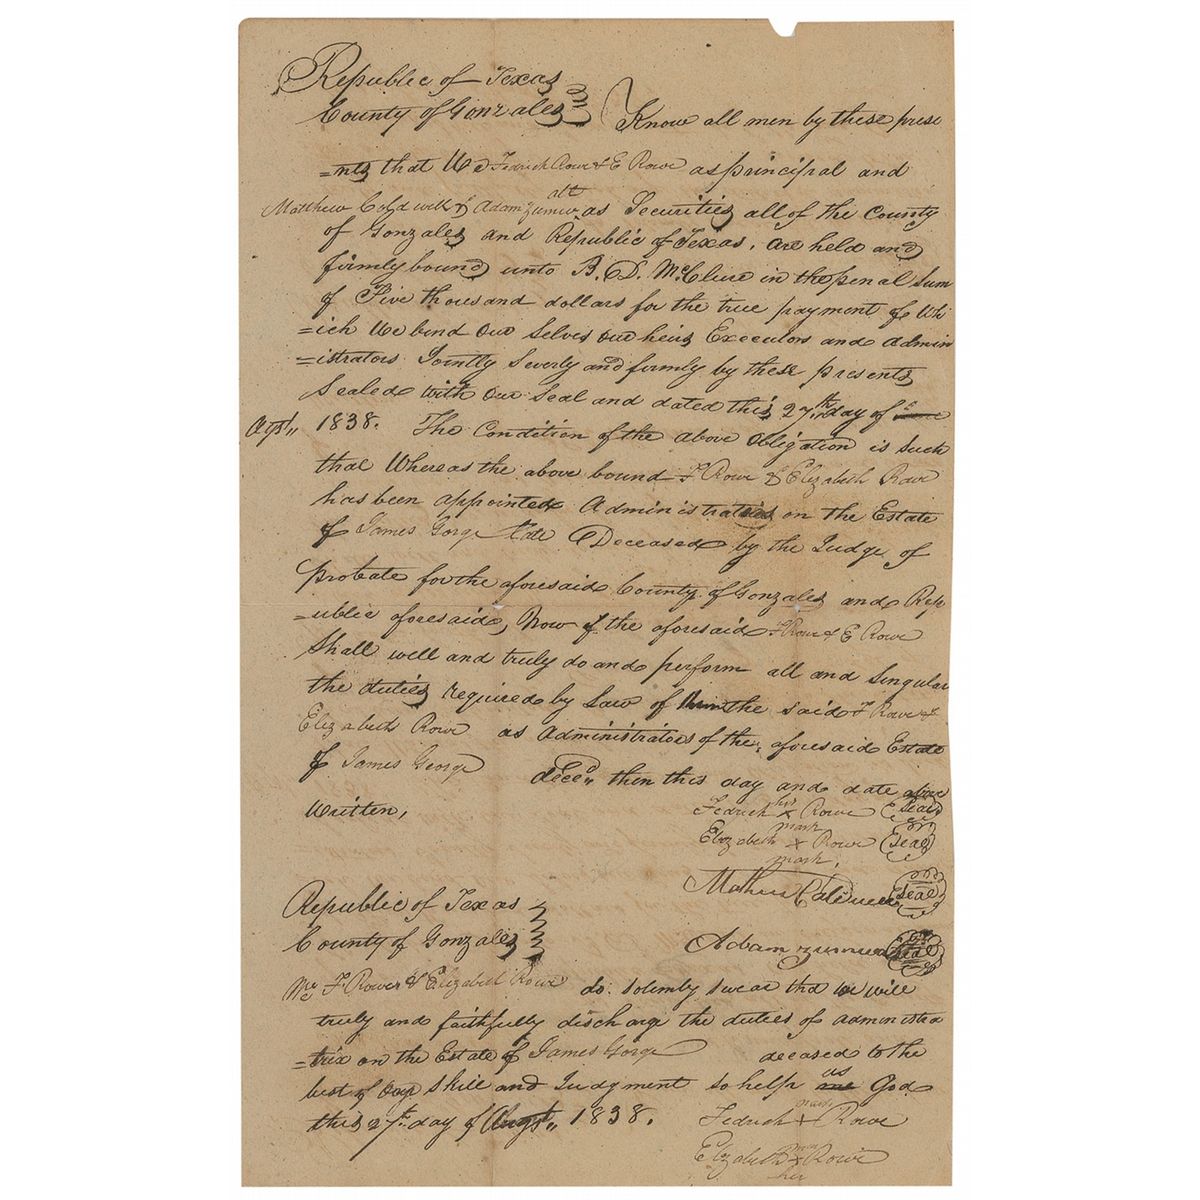 Republic of Texas
County of Gonzales Know all men by these prese
=nts that We Fedrich Rowe & E Rowe as principal and
Matthew Coldwell & Adam Zumwalt as Securities all of the County
of Gonzales and Republic of Texas, are held and
firmly bound unto B. D. McClure in the penal sum
of Five thousand dollars for the true payment of Wh
=ich We bend Our Selves Our heirs Executors and Admin
=istrators Jointly Severly and firmly by these presents
Sealed with Our Seal and dated this 27th day of
Agst 1838. The Condition of the above Obligation is Such
that Whereas the above bound F Rowe & Elizabeth Rowe
has been appointed Administrators on the Estate
of James Gorge late Deceased by the Judge of
Probate for the aforesaid County of Gonzales and Rep
=ublic aforesaid, Now if the aforesaid F Rowe & E Rowe
Shall well and truly do and perform all and Singular
the duties required by Law of the said F Rowe &
Elizabeth Rowe as administrators of the aforesaid Estate
of James George decd then this day and date above
Written,
Fedrich his x Rowe Seal
mark
Elizabeth x Rowe Seal
mark,
Mathew Caldwell Seal
Republic of Texas
County of Gonzales
Adam Zumwalt Seal
We F Rowe & Elizabeth Rowe do Solemly Swear tha we will
truly and faithfully discharge the duties of administra
=trix on the Estate of James Gorge deceased to the
best of our Skill and Judgment so help us God
this 27th day of Augst 1838.
Fedrich mark x Rowe
Elizabeth mark x Rowe
her